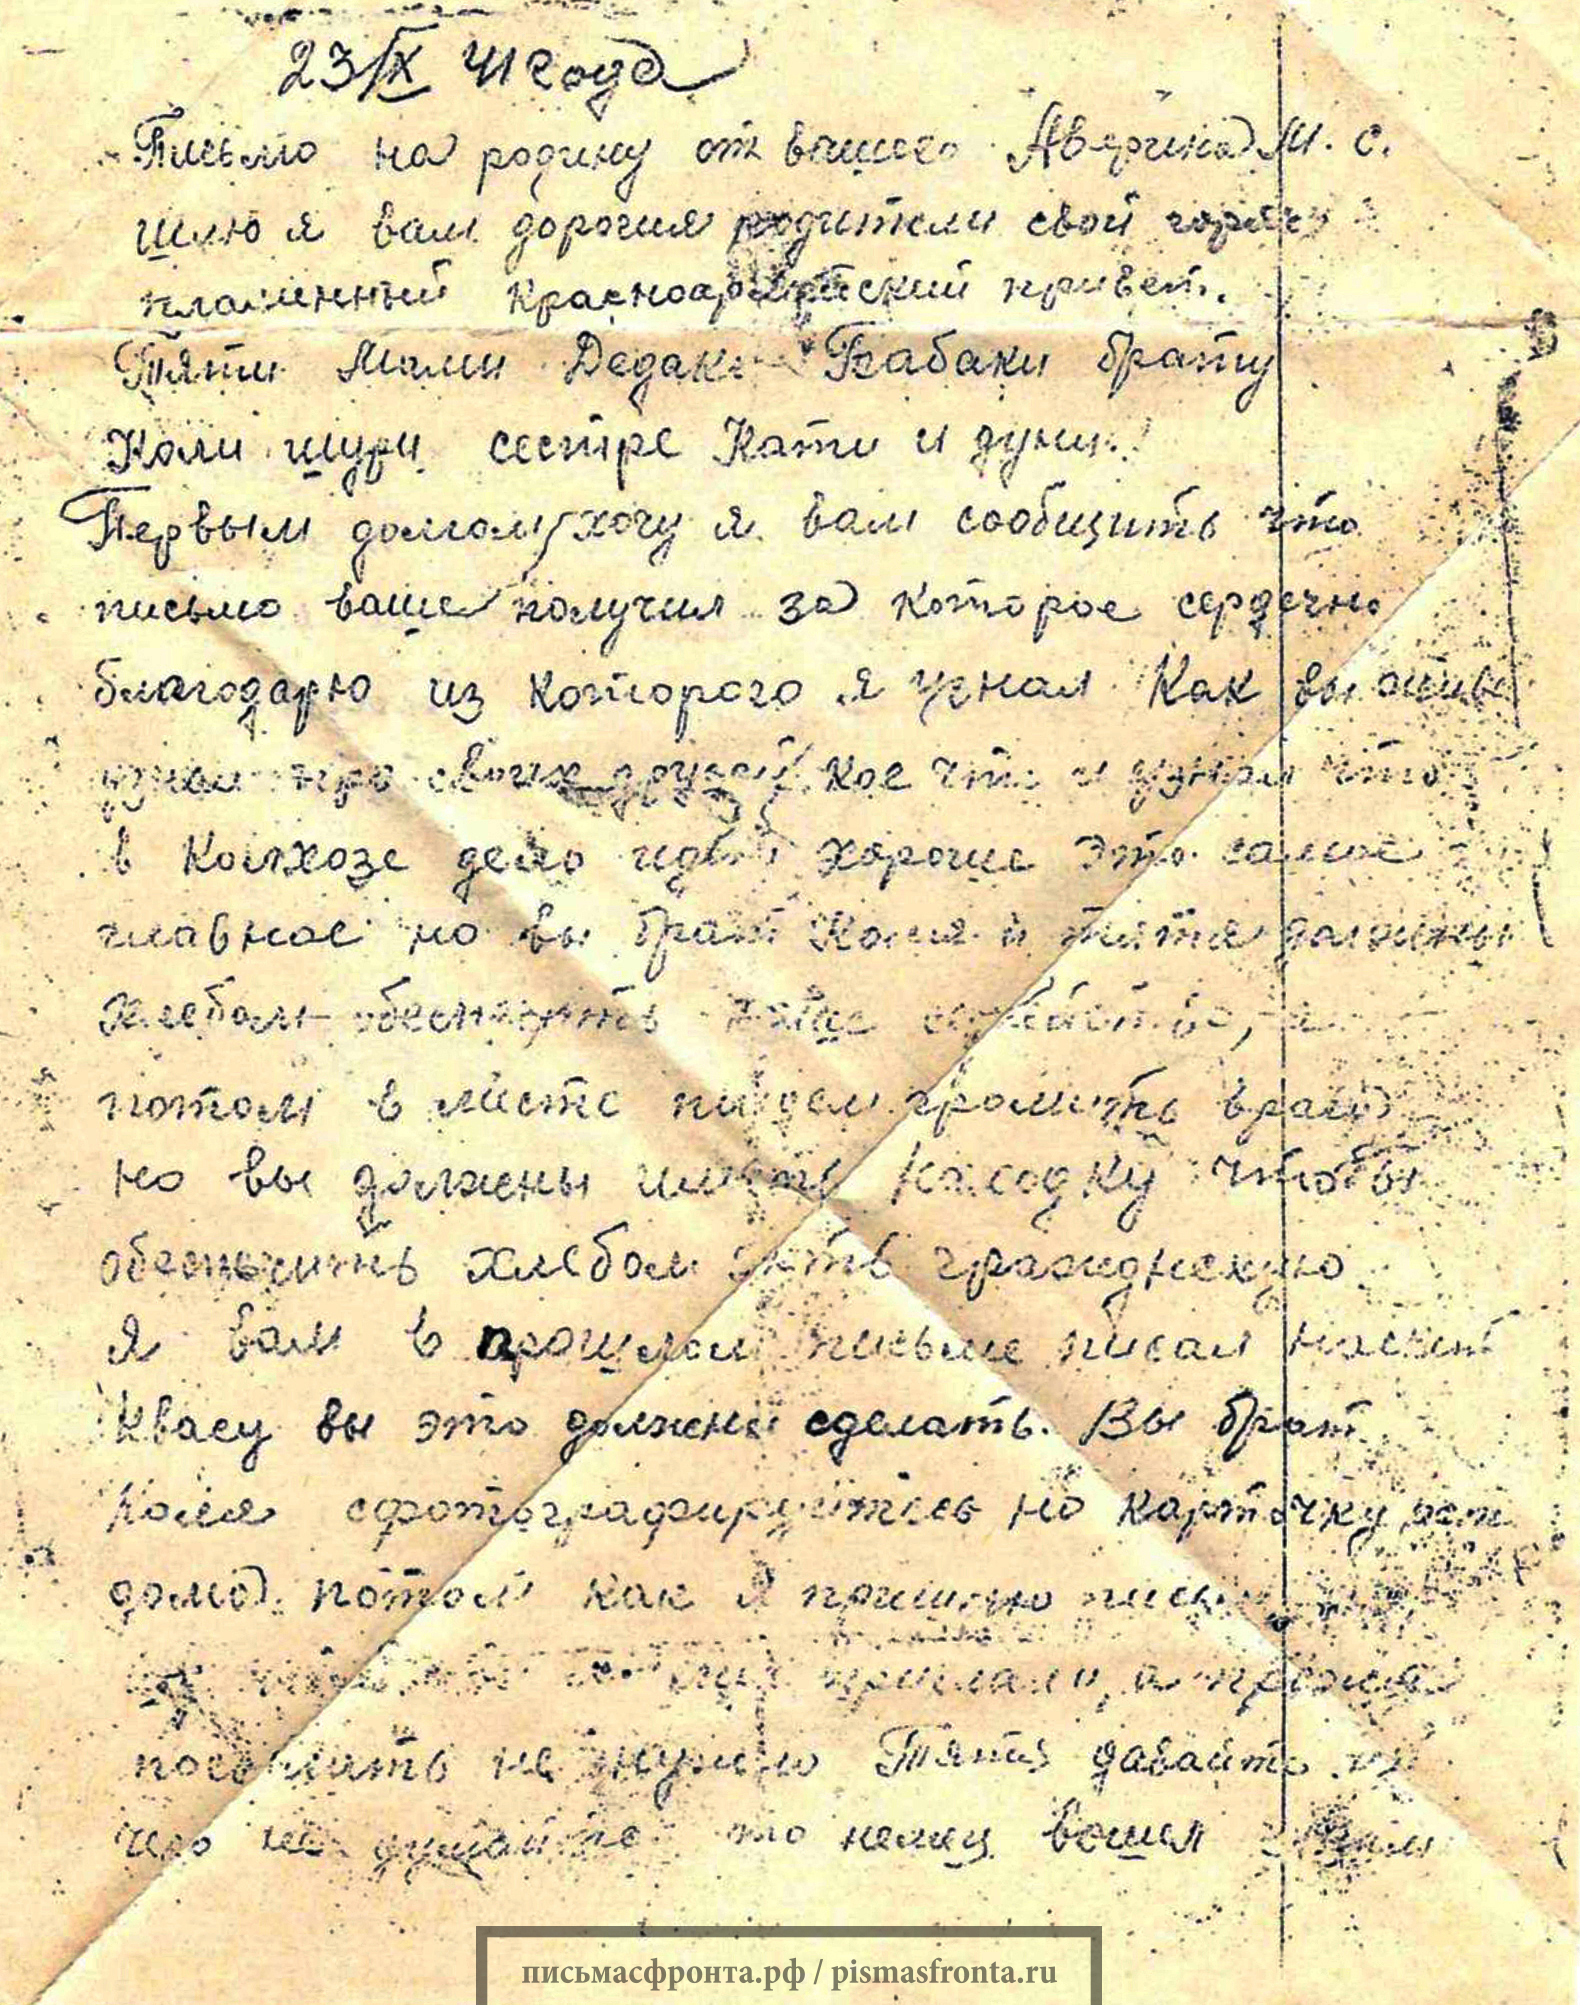 23/IX 41 года
Письмо на родину от вашего Аверина М. С.
шлю я вам дорогия родители свой горячи
пламенный красноармейский привет.
Тяти Мами Дедаки Бабаки брату
Коли шури сестре Кати и дуни!
Первым долгом хочу я вам сообщить что
письмо ваше получил за которое сердечно
благодарю из которого я узнал Как вы
узнал про своих друзей кое что и узнал что
в Колхозе дело идет хороше это самое
главное но вы брат Коля и тятя должны
хлебом обеспечить
потом в месте пойдем громить врага
но вы должны иметь находку чтобы
обеспечить хлебом гражднскую
Я вам в прошлом письме писал насчет
Квасу вы это должны сделать. Вы брат
Коля сфотографируйтесь на карточку
дома потом как я пришлю
прислали, а прежня
посылать не нужно Тятя давайте ни
чего не думайте что немец вошел
письмасфронта.рф / pismasfronta.ru